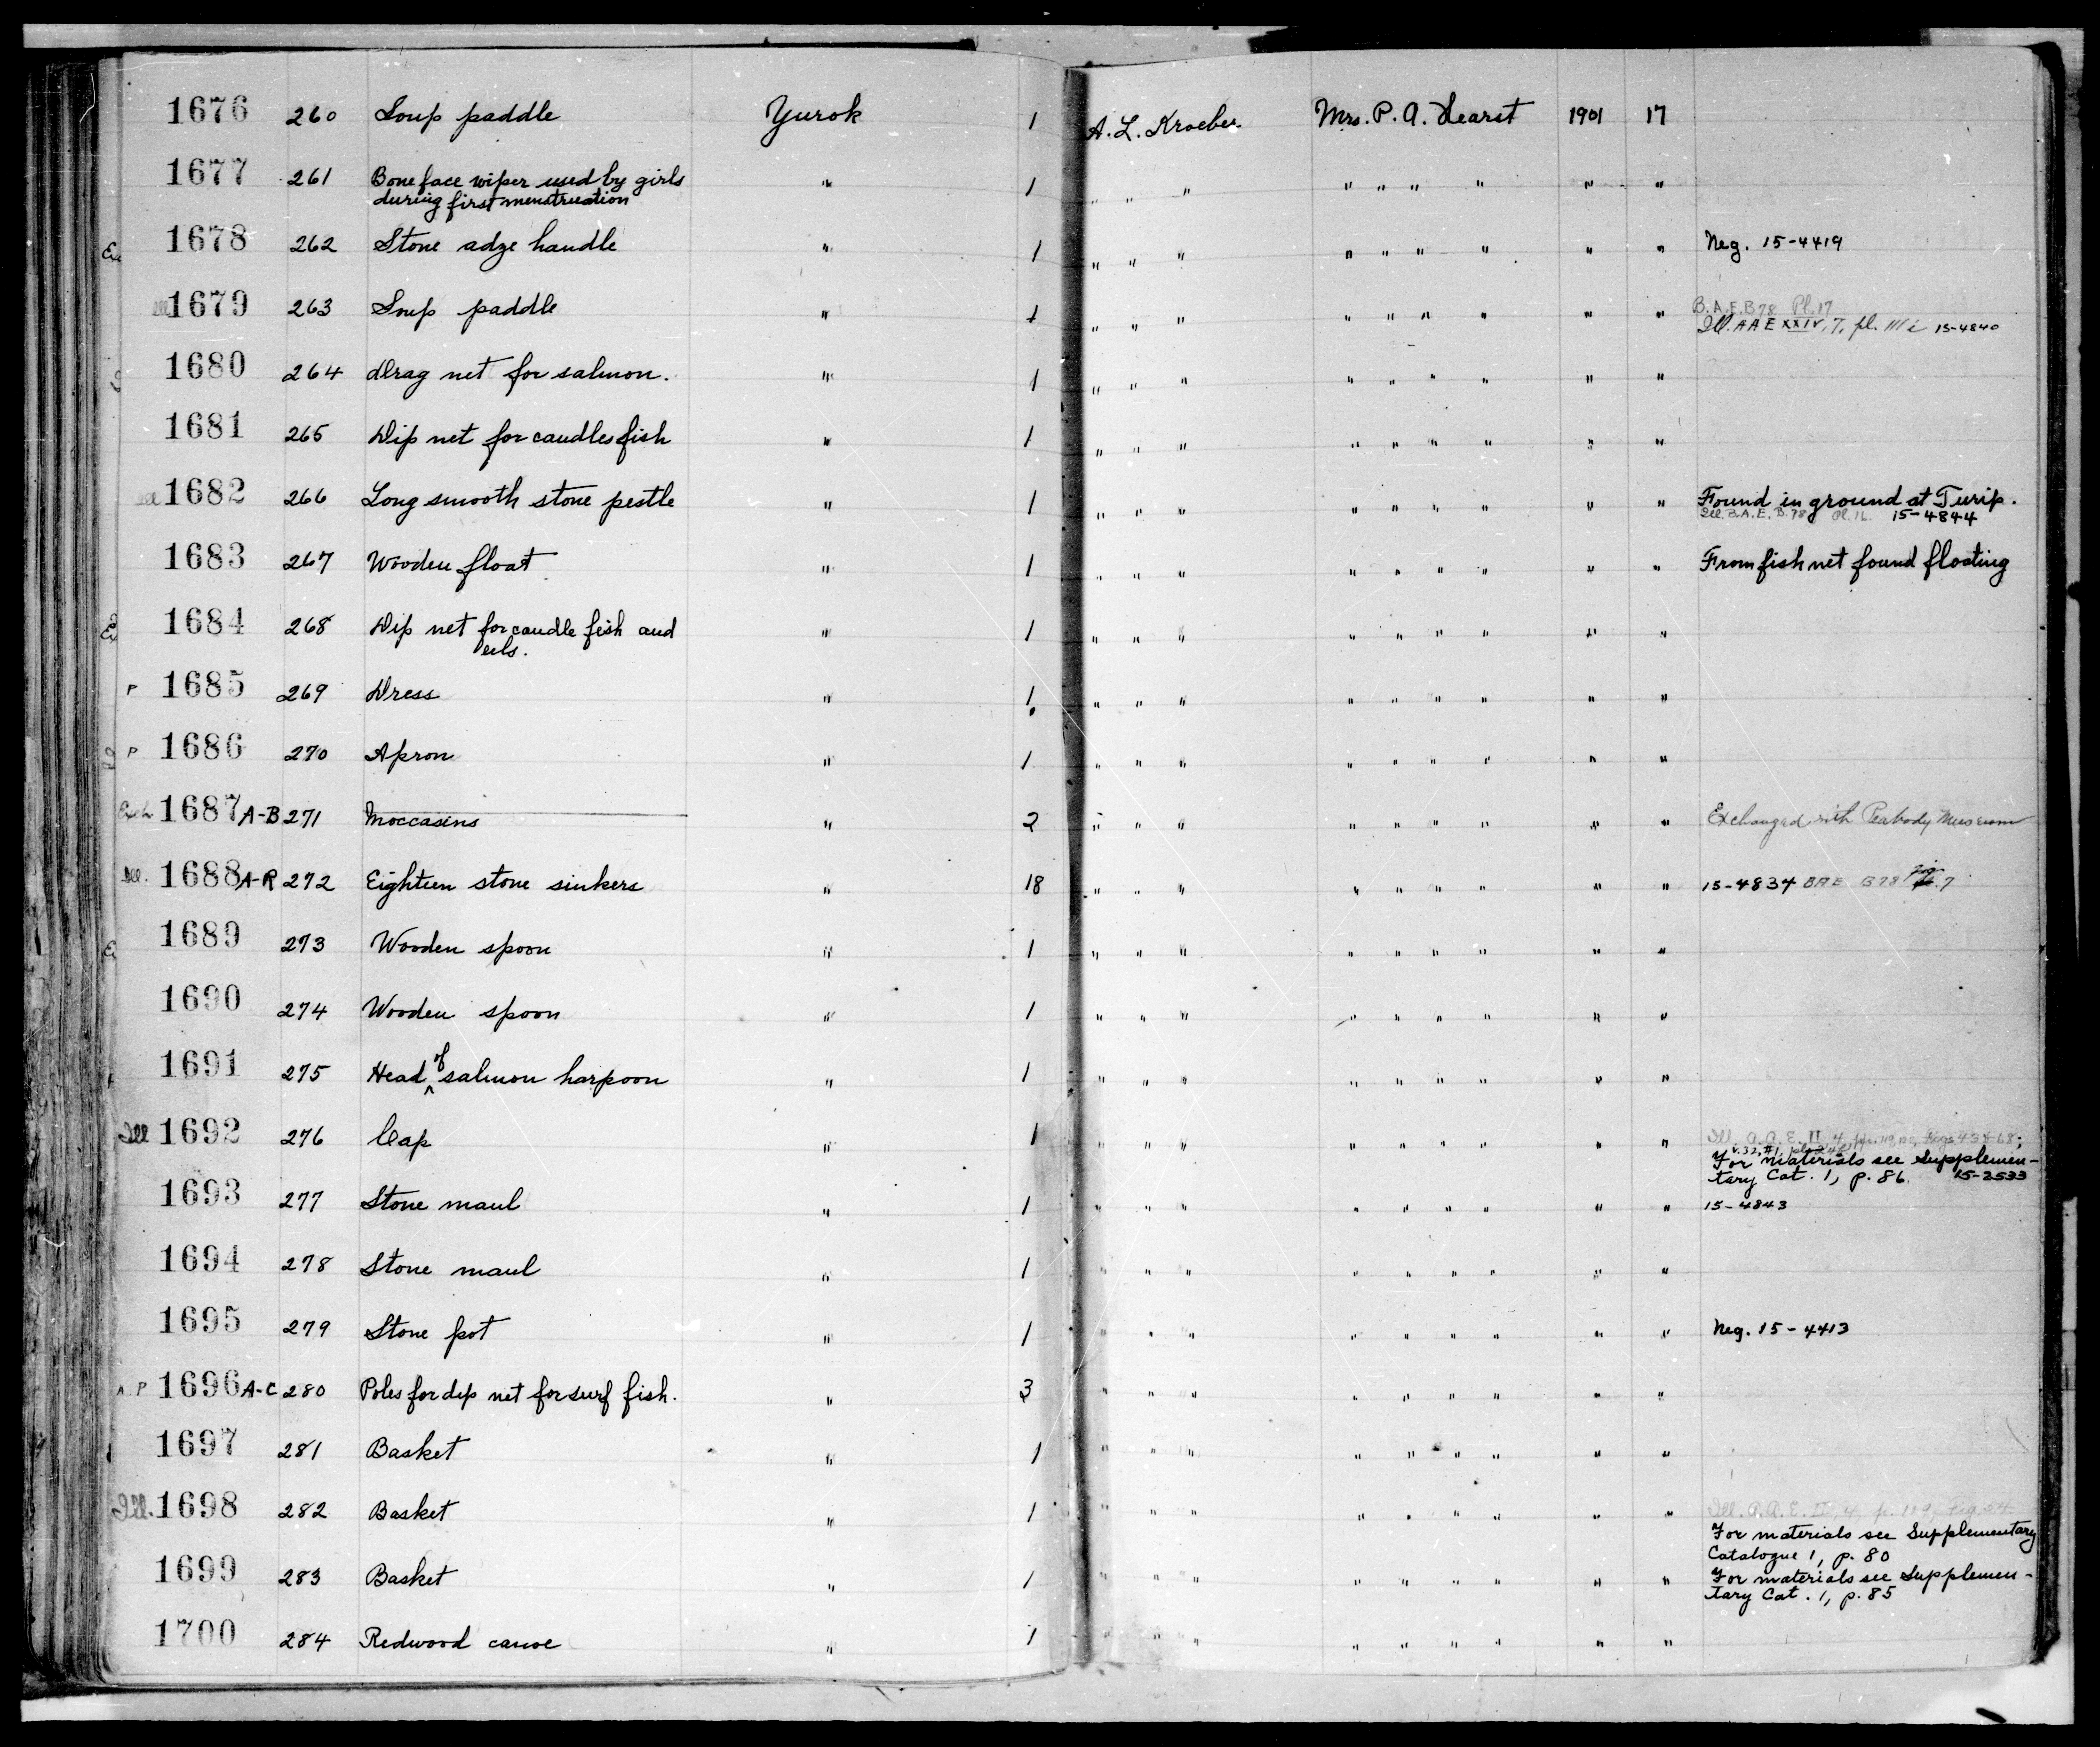 1676 260 Soup paddle Yurok 1 A. L. Kroeber Mrs. P. A. Hearst 1901 17
1677 261 Bone face wiper used by girls " 1 " " " " " " " " "
during first menstruation
1678 262 Stone adze handle " 1 " " " " " " " " " Neg. 15-4419
Ill 1679 263 Soup paddle " 1 " " " " " " " " " B.A.E. B78 Pl. 17
Ill. AAE XXIV, 7, pl. 15-4840
1680 264 Drag net for salmon. " 1 " " " " " " " " "
1681 265 Dip net for candles fish " 1 " " " " " " " " "
Ill 1682 266 Long smooth stone pestle " 1 " " " " " " " " " Found in ground at Turip.
Ill. B.A.E. B.78 Pl. 16 15-4844
1683 267 Wooden float " 1 " " " " " " " " " From fish net found floating
1684 268 Dip net for candle fish and " 1 " " " " " " " " "
eels.
P 1685 269 Dress " 1 " " " " " " " " "
P 1686 270 Apron " 1 " " " " " " " " "
Exch 1687 A-B 271 Moccasins " 2 " " " " " " " " " Exchanged with Peabody Museum
Ill. 1688 A-R 272 Eighteen stone sinkers " 18 " " " " " " " " " 15-4834 BAE B78 fig. 7
1689 273 Wooden spoon " 1 " " " " " " " " "
1690 274 Wooden spoon " 1 " " " " " " " " "
1691 275 Head of salmon harpoon " 1 " " " " " " " " "
Ill 1692 276 Cap " 1 " " " " " " " " " Ill. A.A.E. II, 4,
v.32, #1,
For materials see Supplemen-
tary Cat. 1, p. 86. 15-2533
1693 277 Stone maul " 1 " " " " " " " " " 15-4843
1694 278 Stone maul " 1 " " " " " " " " "
1695 279 Stone pot " 1 " " " " " " " " " Neg. 15-4413
P 1696 A-C 280 Poles for dip net for surf fish. " 3 " " " " " " " " "
1697 281 Basket " 1 " " " " " " " " "
Ill. 1698 282 Basket " 1 " " " " " " " " " Ill. A.A.E. II, 4, p. 119, Fig 54
For materials see Supplementary
Catalogue 1, p. 80
1699 283 Basket " 1 " " " " " " " " " For materials see Supplemen-
tary Cat. 1, p. 85
1700 284 Redwood canoe " 1 " " " " " " " " "